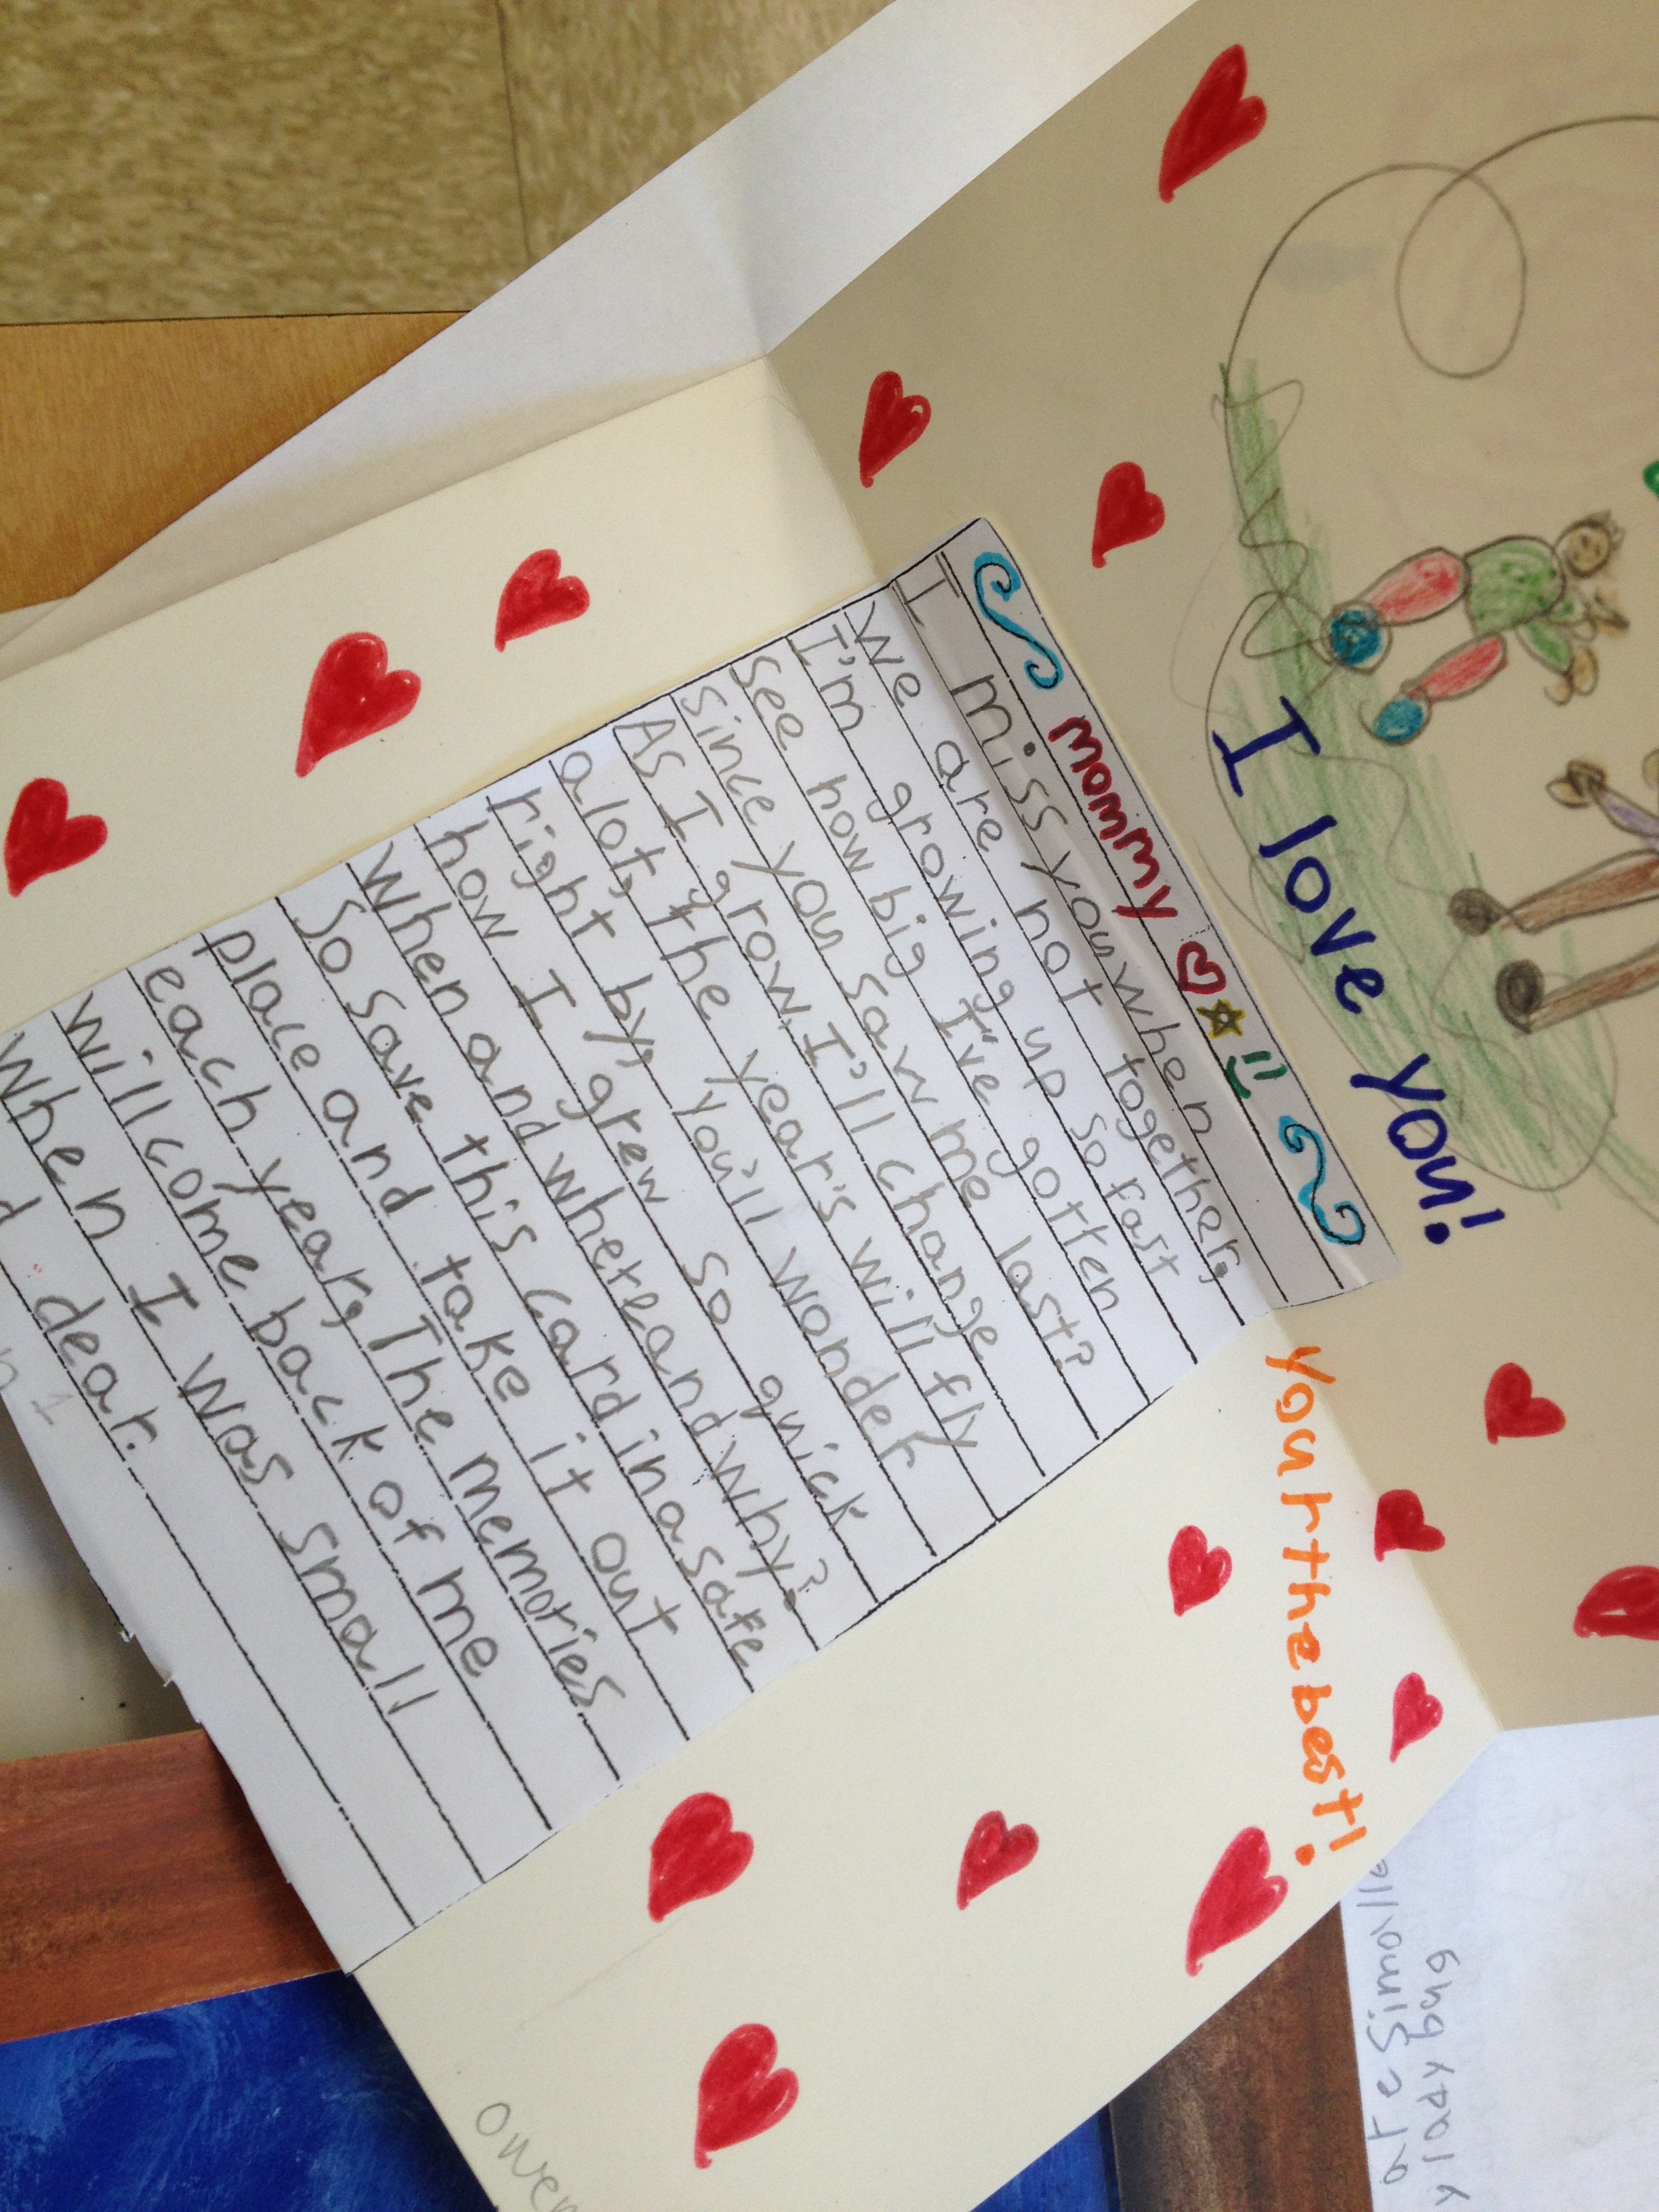 I love you!
your the best!
mommy
I miss you when
we are not together,
I'm growing up so fast
see how big I've gotten
since you saw me last?
As I grow, I'll change
alot, the year's will fly
right by, you'll wonder
how I grew so quick
when and where and why?
So save this card in a safe
place and take it out
each year, The memories
will come back of me
when I was small
dear.
owen
lady bug